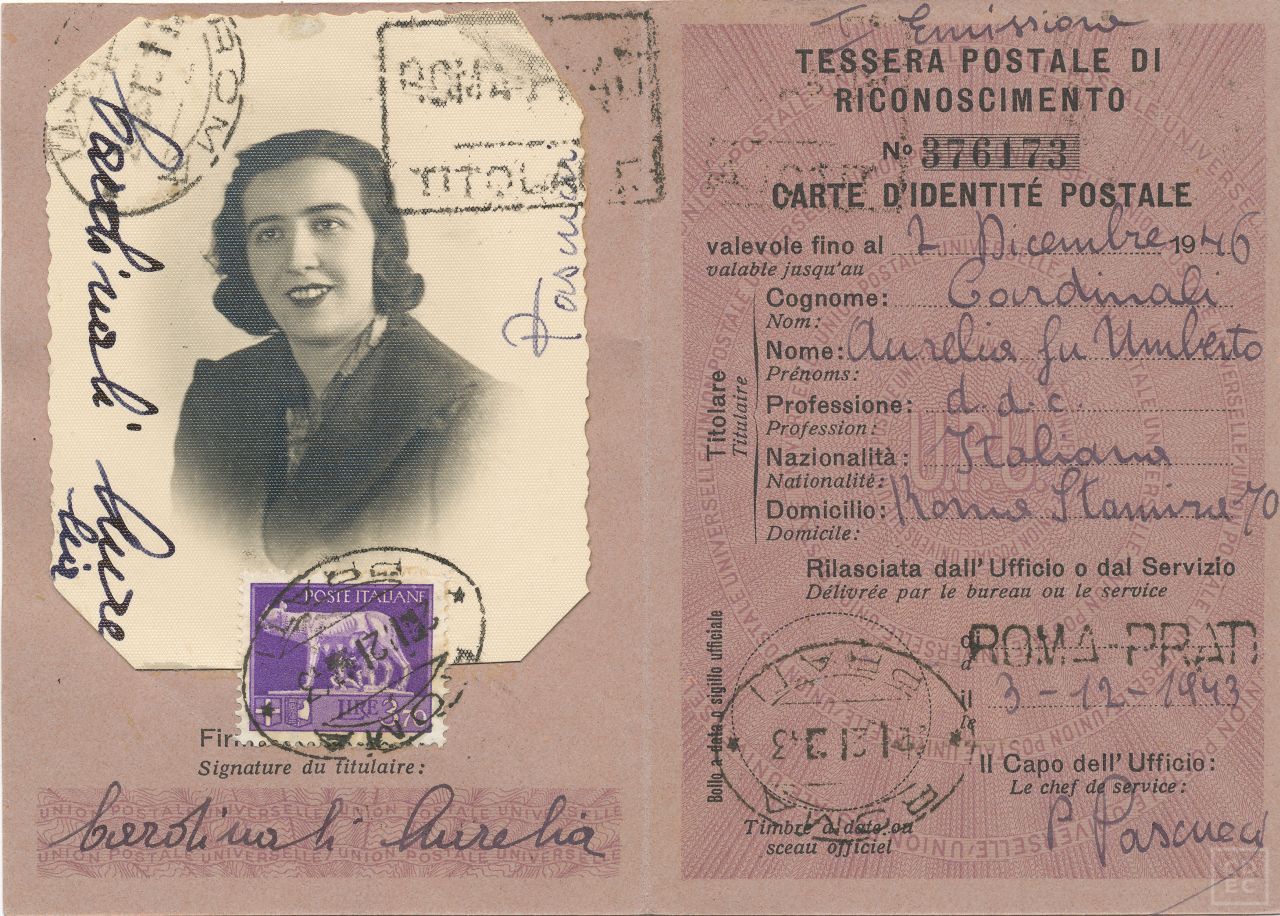 Cardinali Aure
lia
ROMA
ROMA-PRATI
TITOLARE
Pascucci
POSTE ITALIANE
LIRE 3,70
ROMA
PRATI
Fir
Signature du titulaire:
UNION POSTALE UNIVERSELLE/UNION POSTALE UNIVERSELLE
Cardinali Aurelia
I Emissione
TESSERA POSTALE DI
RICONOSCIMENTO
No 376173
CARTE D'IDENTITÉ POSTALE
valevole fino al 2 Dicembre 1946
valable jusqu'au
Titolare
Titulaire
Cognome: Cardinali
Nom:
Nome: Aurelia fu Umberto
Prénoms:
Professione: d.d.c.
Profession:
Nazionalità: Italiana
Nationalité:
Domicilio: Roma Stamira 70
Domicile:
Rilasciata dall'Ufficio o dal Servizio
Délivrée par le bureau ou le service
di ROMA-PRATI
il 3-12-1943
le
Bollo a data o sigillo ufficiale
ROMA
PRATI
Il Capo dell'Ufficio:
Le chef de service:
Timbre à date ou
sceau officiel
P Pascucci
U.P.U.